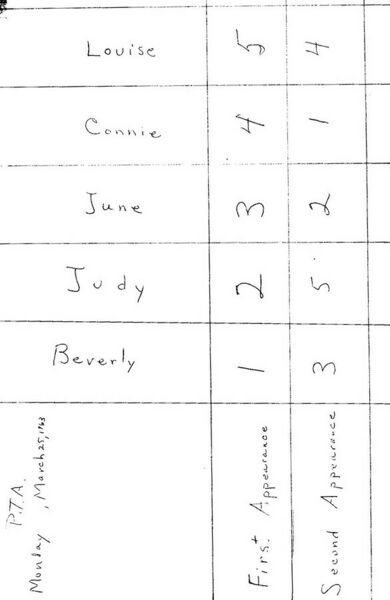 Louise 5 4
Connie 4 1
June 3 2
Judy 2 5
Beverly 1 3
P.T.A.
Monday, March 25, 1963
First Appearance
Second Appearance